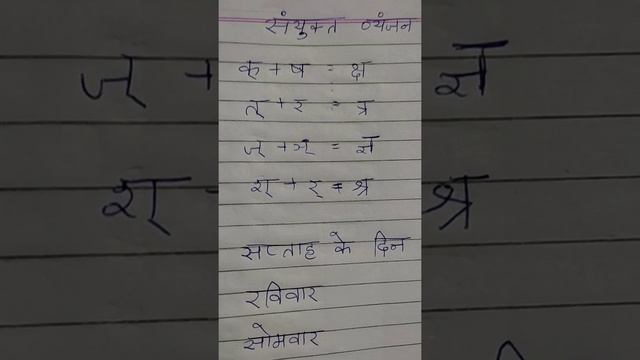 संयुक्त व्यंजन
क् + ष = क्ष
त् + र = त्र
ज् + ञ् = ज्ञ
श् + र् = श्र
सप्ताह के दिन
रविवार
सोमवार